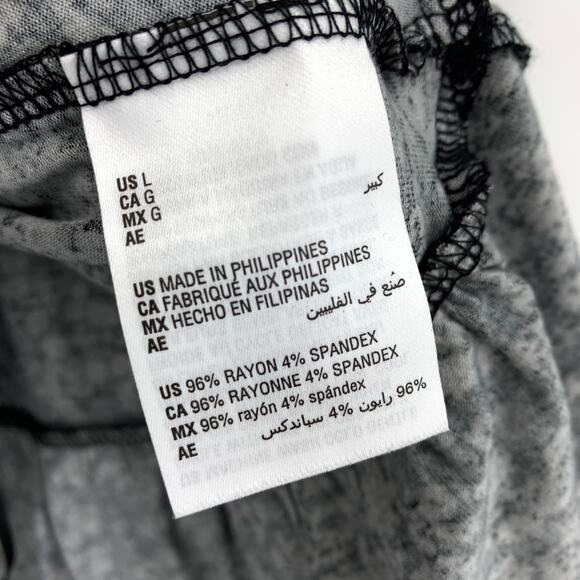 US L
CA G
MX G
AE كبير
US MADE IN PHILIPPINES
CA FABRIQUÉ AUX PHILIPPINES
MX HECHO EN FILIPINAS
AE صنع في الفلبين
US 96% RAYON 4% SPANDEX
CA 96% RAYONNE 4% SPANDEX
MX 96% rayón 4% spándex
AE 96% رايون 4% سباندكس